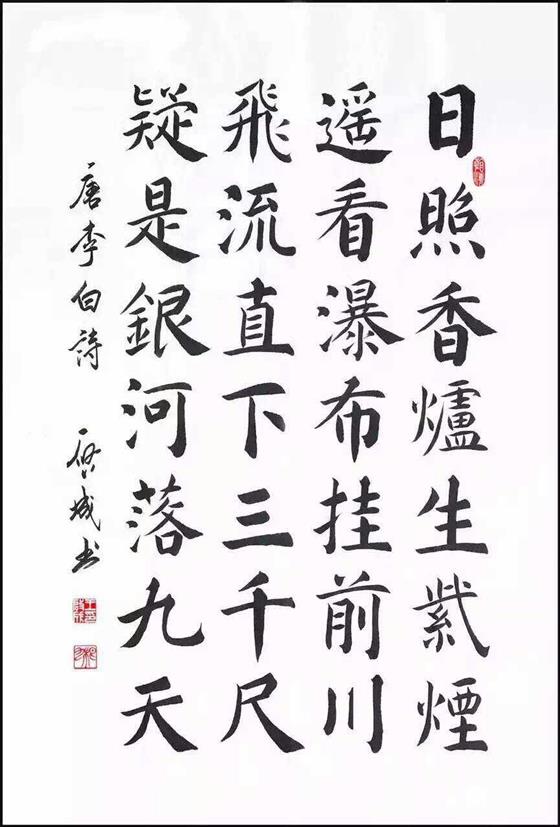 日照香爐生紫煙
遥看瀑布挂前川
飛流直下三千尺
疑是銀河落九天
唐李白詩
啓城书